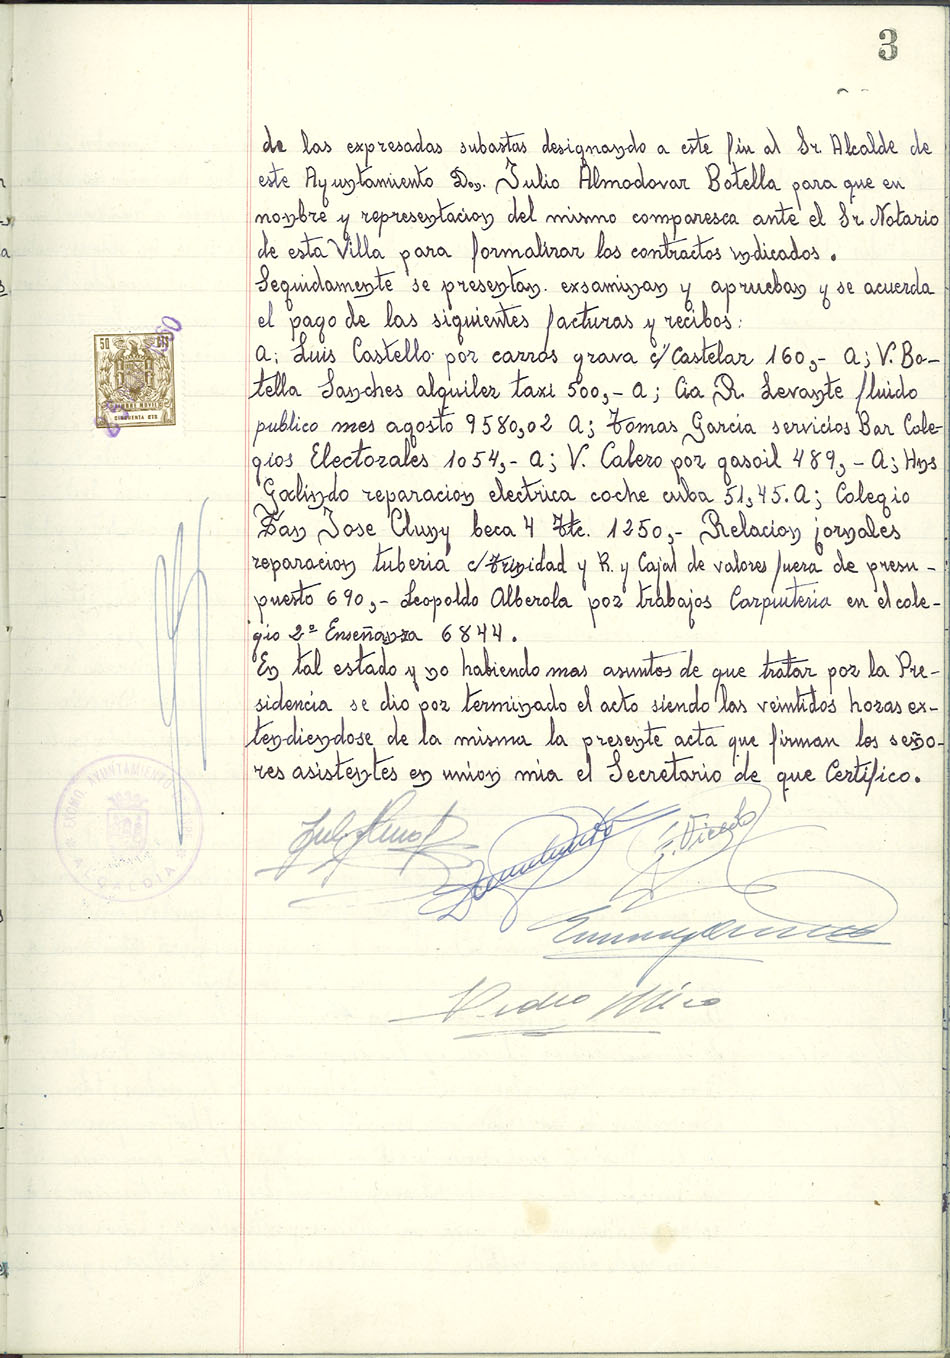 3
de las expresadas subastas designando a este fin al Sr. Alcalde de
este Ayuntamiento Don. Julio Almodovar Botella para que en
nonbre y representacion del mismo comparesca ante el Sr. Notario
de esta Villa para formalizar los contractos indicados.
Seguidamente se presentan. exsaminan y aprueban y se acuerda
el pago de las siguientes facturas y recibos:
A; Luis Castello por carros grava c/ Castelar 160,- A; V. Bo-
tella Sanches alquiler taxi 500,- A; Cia R. Levante fluido
publico mes agosto 9580,02 A; Tomas Garcia servicios Bar Cole-
gios Electorales 1054,- A; V. Calero por gasoil 489,- A; Hns
Galindo reparacion electrica coche cuba 51,45. A; Colegio
San Jose Cluny beca 4 Ttc. 1250,- Relacion jornales
reparacion tuberia c/ Trinidad y R. y Cajal de valores fuera de presu-
puesto 690,- Leopoldo Alberola por trabajos Carpinteria en el cole-
gio 2ª Enseñanza 6844.
En tal estado y no habiendo mas asuntos de que tratar por la Pre-
sidencia se dio por terminado el acto siendo las veintidos horas ex-
tendiendose de la misma la presente acta que firman los seño-
res asistentes en union mia el Secretario de que Certifico.
50 CTS
TIMBRE MOVIL
CINCUENTA CTS
EXCMO. AYUNTAMIENTO DE
ALCALDIA
Vicedo
Pedro Mico